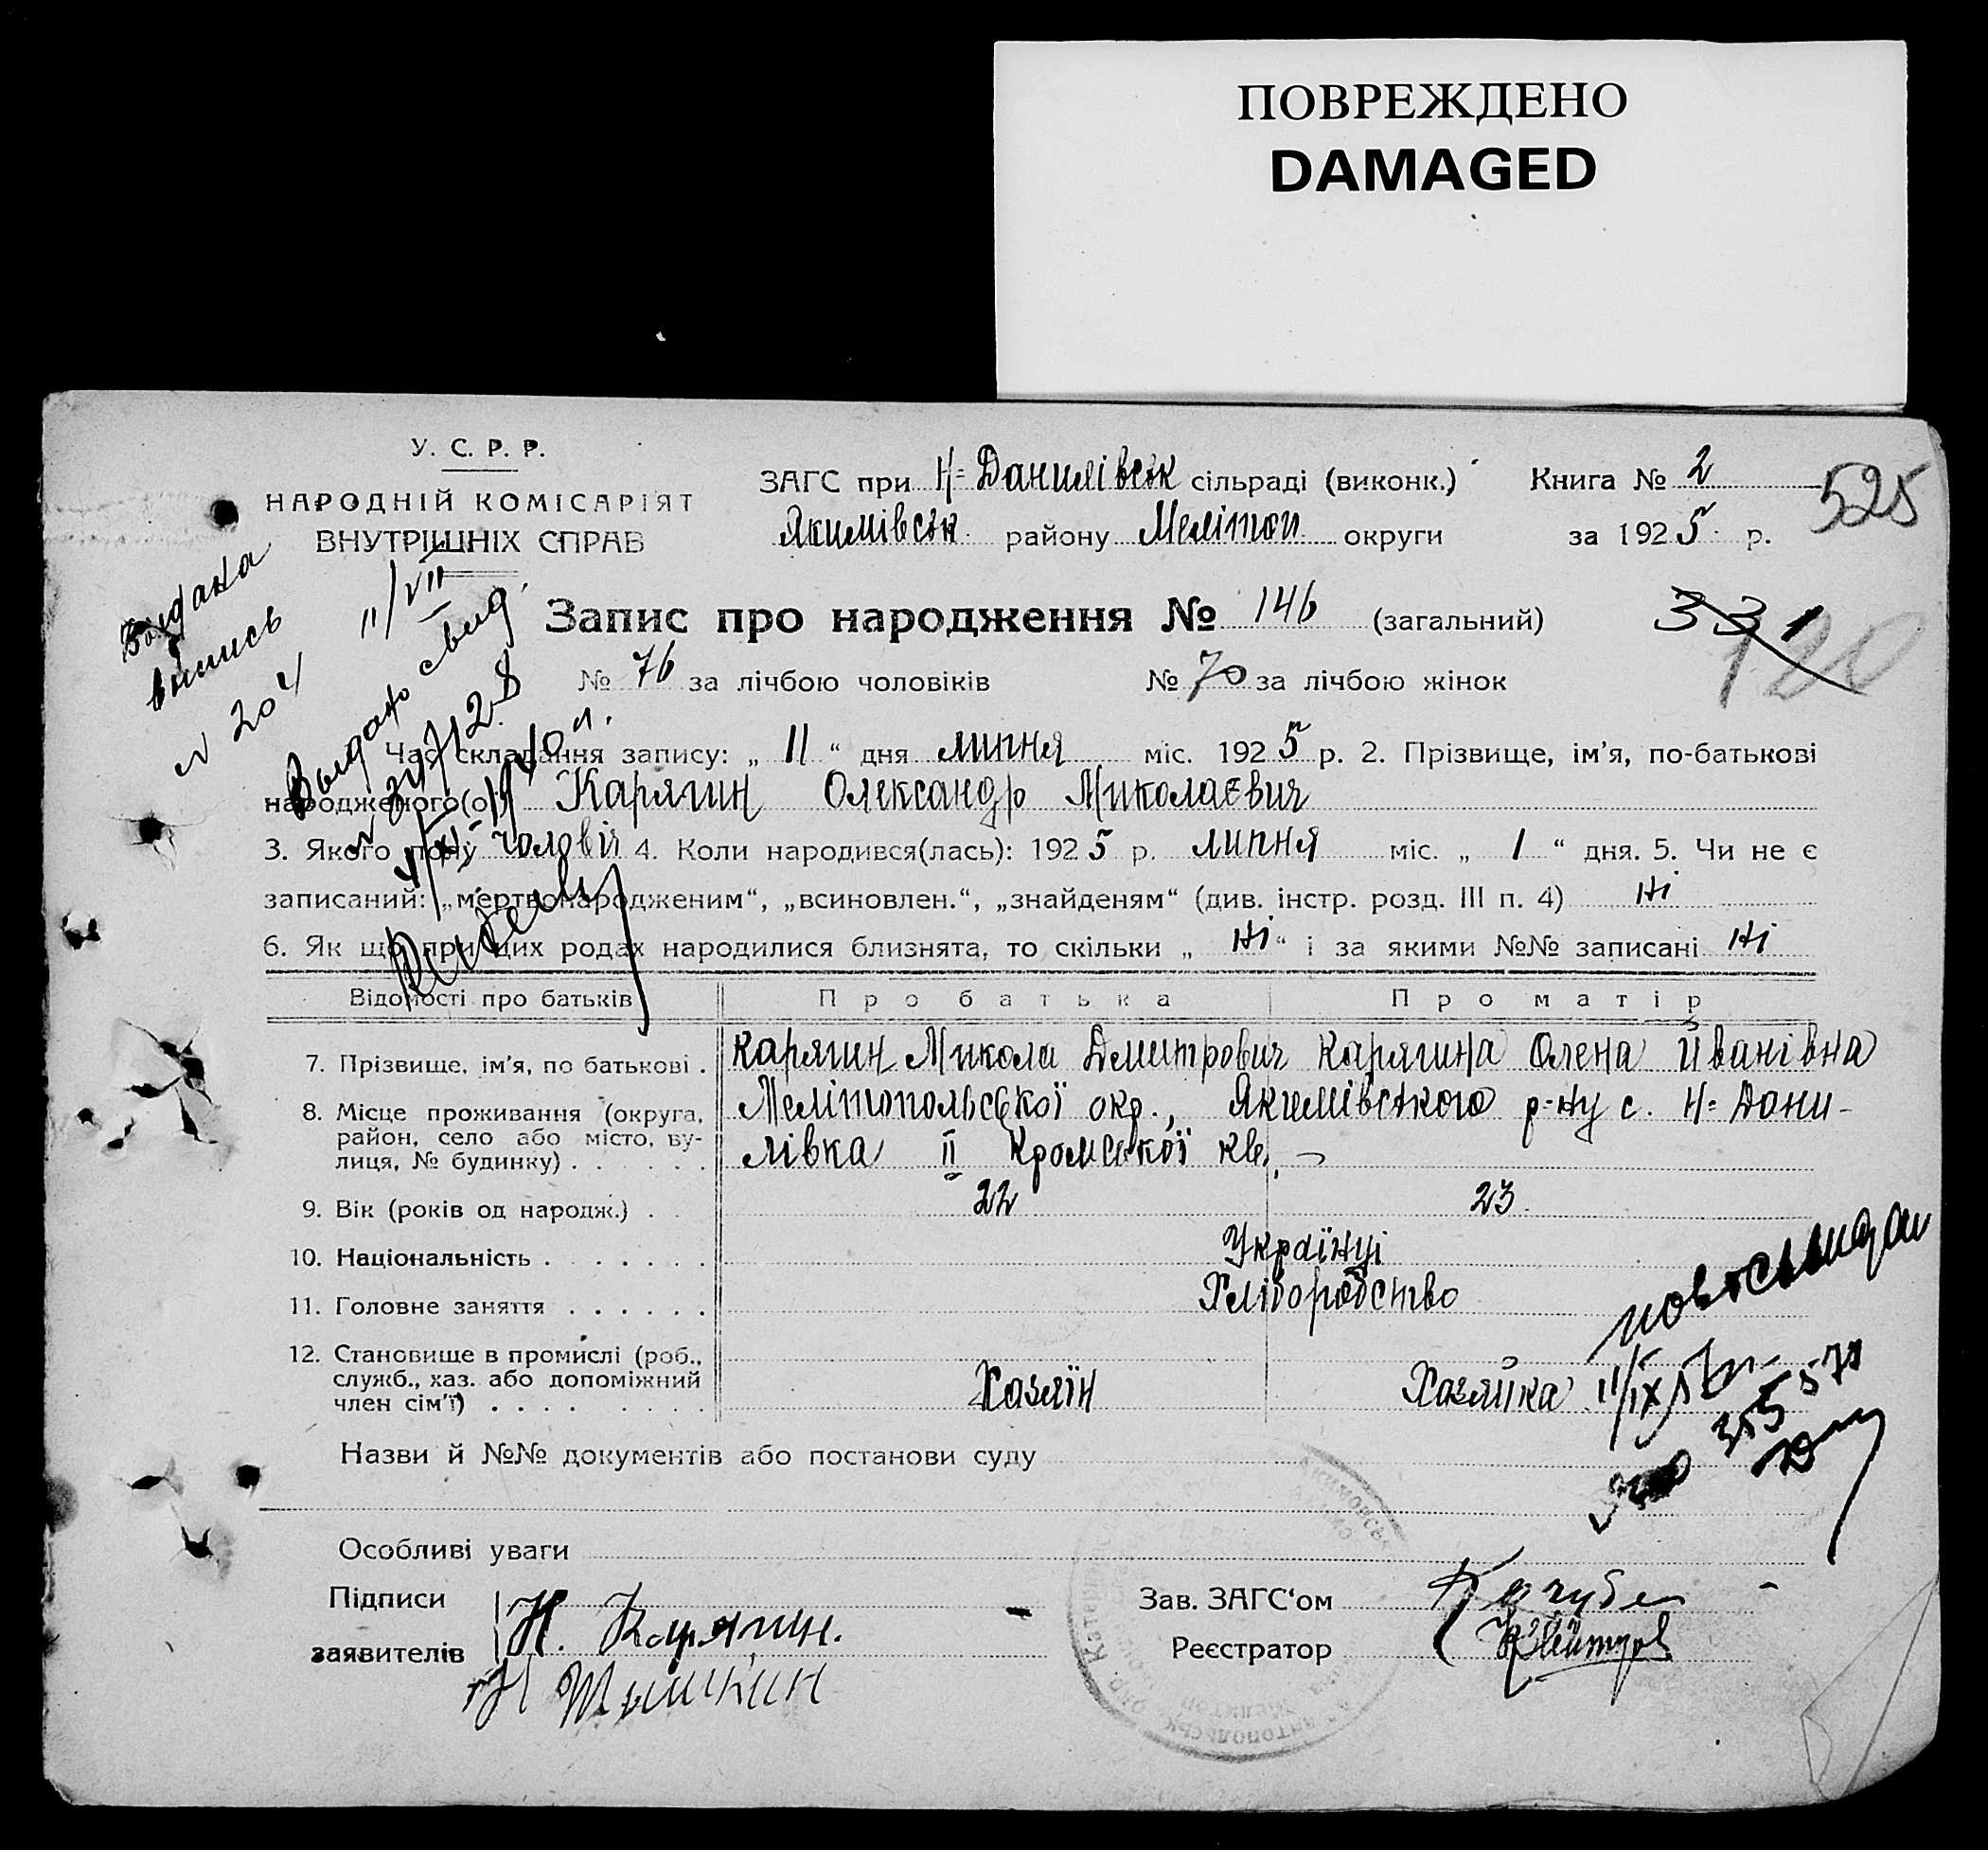 ПОВРЕЖДЕНО
DAMAGED
У. С. Р. Р.
НАРОДНІЙ КОМІСАРІЯТ
ВНУТРІШНІХ СПРАВ
ЗАГС при Н-Данилівськ сільраді (виконк.)
Якимівськ району Мелітоп округи
Книга № 2
за 1925 р.
525
Видана
випись
N 204
11/VII
Запис про народження № 146 (загальний)
331
120
№ 76 за лічбою чоловіків № 70 за лічбою жінок
Выдано свид.
Час складання запису: „ 11 “ дня липня міс. 1925 р. 2. Прізвище, ім'я, по-батькові
народженого(ої) Карягин Олександр Миколаєвич
3. Якого полу чоловіч 4. Коли народився(лась): 1925 р. липня міс. „ 1 “ дня. 5. Чи не є
записаний: „мертвонародженим“, „всиновлен.“, „знайденям“ (див. інстр. розд. III п. 4) ні
6. Як що при цих родах народилися близнята, то скільки „ ні “ і за якими №№ записані ні
Відомості про батьків Про батька Про матір
7. Прізвище, ім'я, по батькові . Карягин Микола Дмитрович Карягина Олена Йванівна
8. Місце проживання (округа, район, село або місто, ву-
лиця, № будинку) . . . . . . Мелітопольської окр., Якимівського р-ну с. Н-Дани-
лівка II Кромської кв.
9. Вік (років од народж.) . 22 23
10. Національність . . . . . . . Українці
11. Головне заняття . . . . . . Хліборобство
12. Становище в промислі (роб.,
служб., хаз. або допоміжний
член сім'ї) . . . . . . . . Хазяїн Хазяйка
11/IX
Назви й №№ документів або постанови суду
Особливі уваги
Підписи
заявителів
Н. Карягин.
Зав. ЗАГС‘ом
Реєстратор